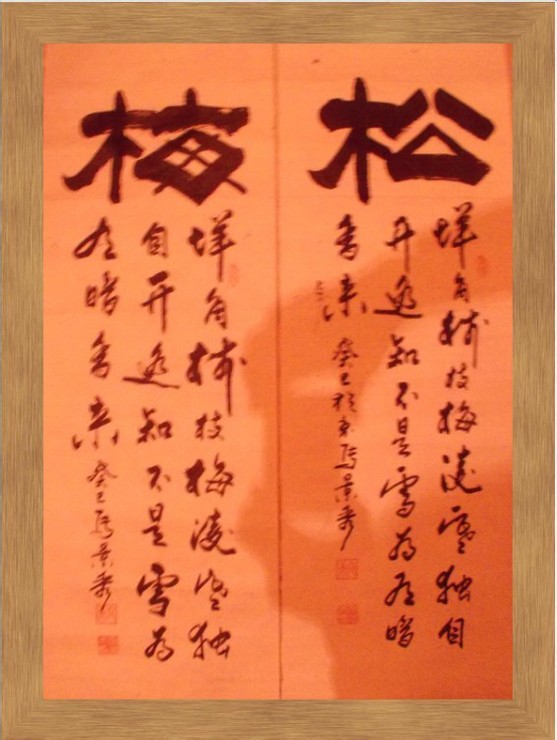 松
墙角数枝梅凌寒独自
开遥知不是雪为有暗
香来 癸巳
梅
墙角数枝梅凌寒独
自开遥知不是雪为
有暗香来 癸巳